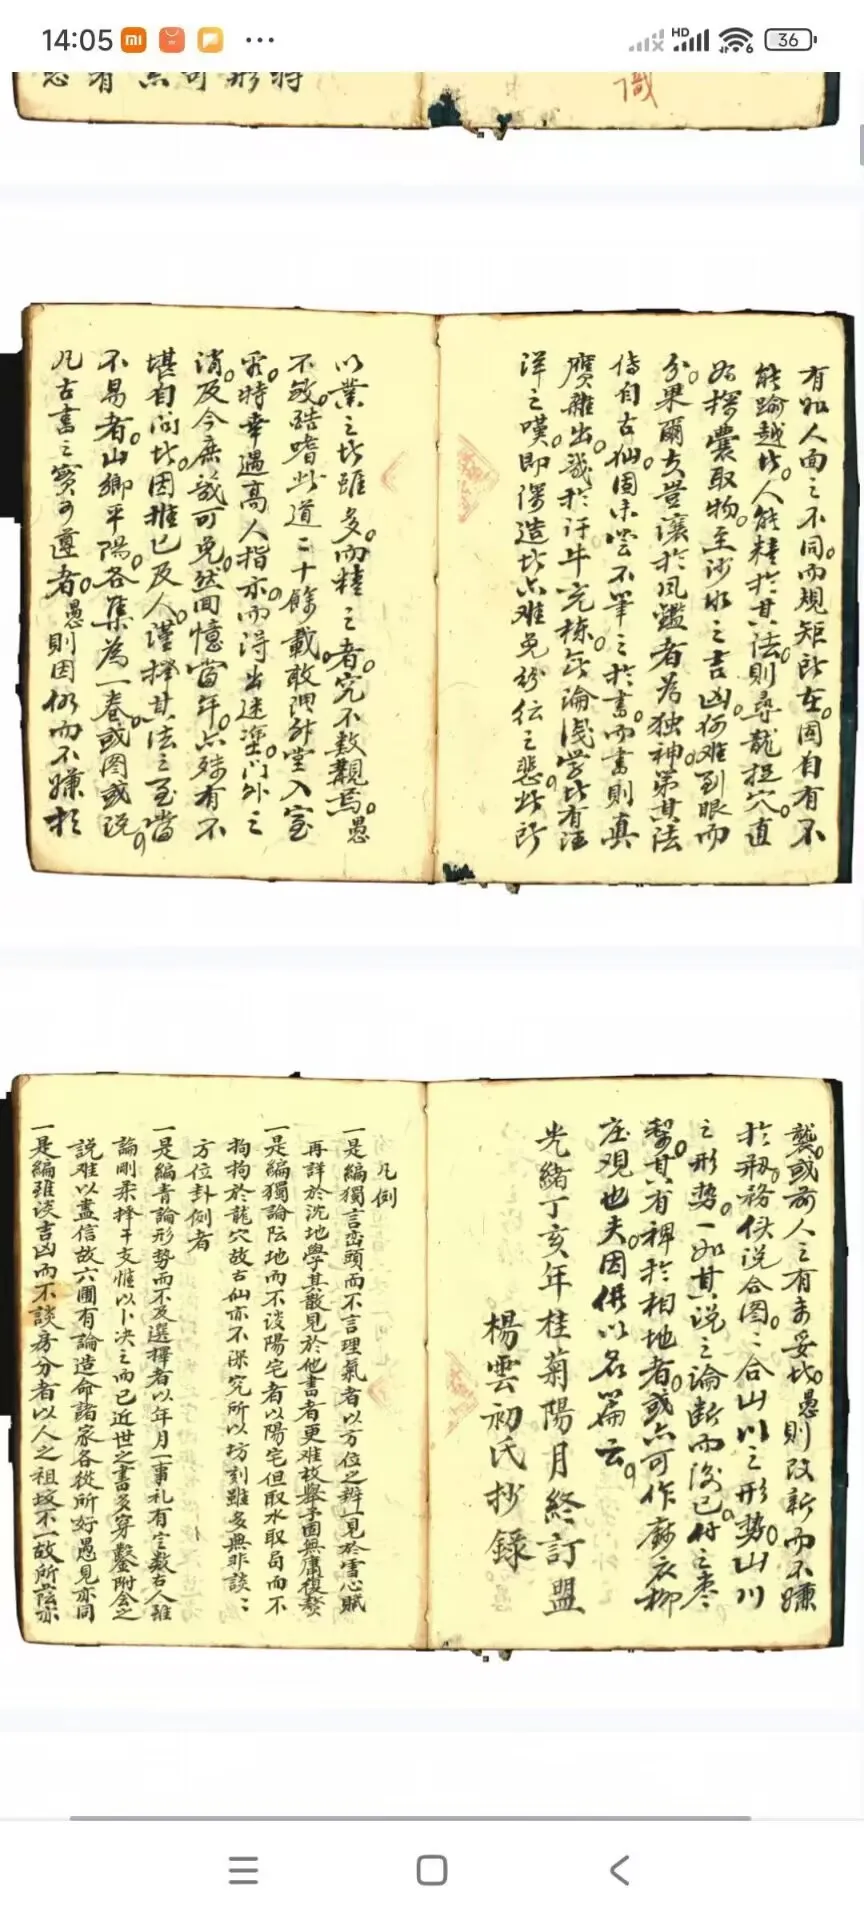 14:05
HD
36
有如人面之不同而規矩所在固自有不
能踰越此人能精於其法則尋龍捉穴直
如探囊取物至沙水之吉凶何难到眼而
分果爾夫豈讓於風鑑者為独神第其法
傳自古仙固未尝不筆之於書而書則真
贗雜出幾於汗牛充棟無論浅学此有汪
洋之嘆即深造此亦难免
以業之此雖多而精之者究不数覯焉愚
不敏酷嗜此道二十餘載敢謂升堂入室
時幸遇高人指示而得出迷塗門外之
消及今庶幾可免然回憶當年亦殊有不
堪自问此因推己及人谨擇其法之至當
不易者山鄉平陽各集為一卷或图或说
凡古書之寶可遵者愚則因仍而不嫌於
襲或前人之有未妥此愚則改新而不嫌
於務使说合图图合山川之形勢山川
之形势一如其说之論断而後已付之枣
梨其有裨於相地者或亦可作麻衣柳
庄观也夫因併以名篇云
光緒丁亥年桂菊陽月終訂盟
楊雲初氏抄錄
凡例
一是編獨言巒頭而不言理氣者以方位之辨一見於雪心賦
再詳於沈地學其散見於他書者更难枚舉予固無庸復贅
一是編獨論陰地而不談陽宅者以陽宅但取水取局而不
拘拘於龍穴故古仙亦不深究所以坊刻雖多無非談談
方位卦例者
一是編專論形势而不及選擇者以年月一事礼有定数古人雖
論剛柔擇干支惟以卜决之而已近世之書多穿鑿附会之
説难以盡信故六圃有論造命諸家各從所好愚見亦同
一是編雖谈吉凶而不談房分者以人之祖坟不一故所蔭亦